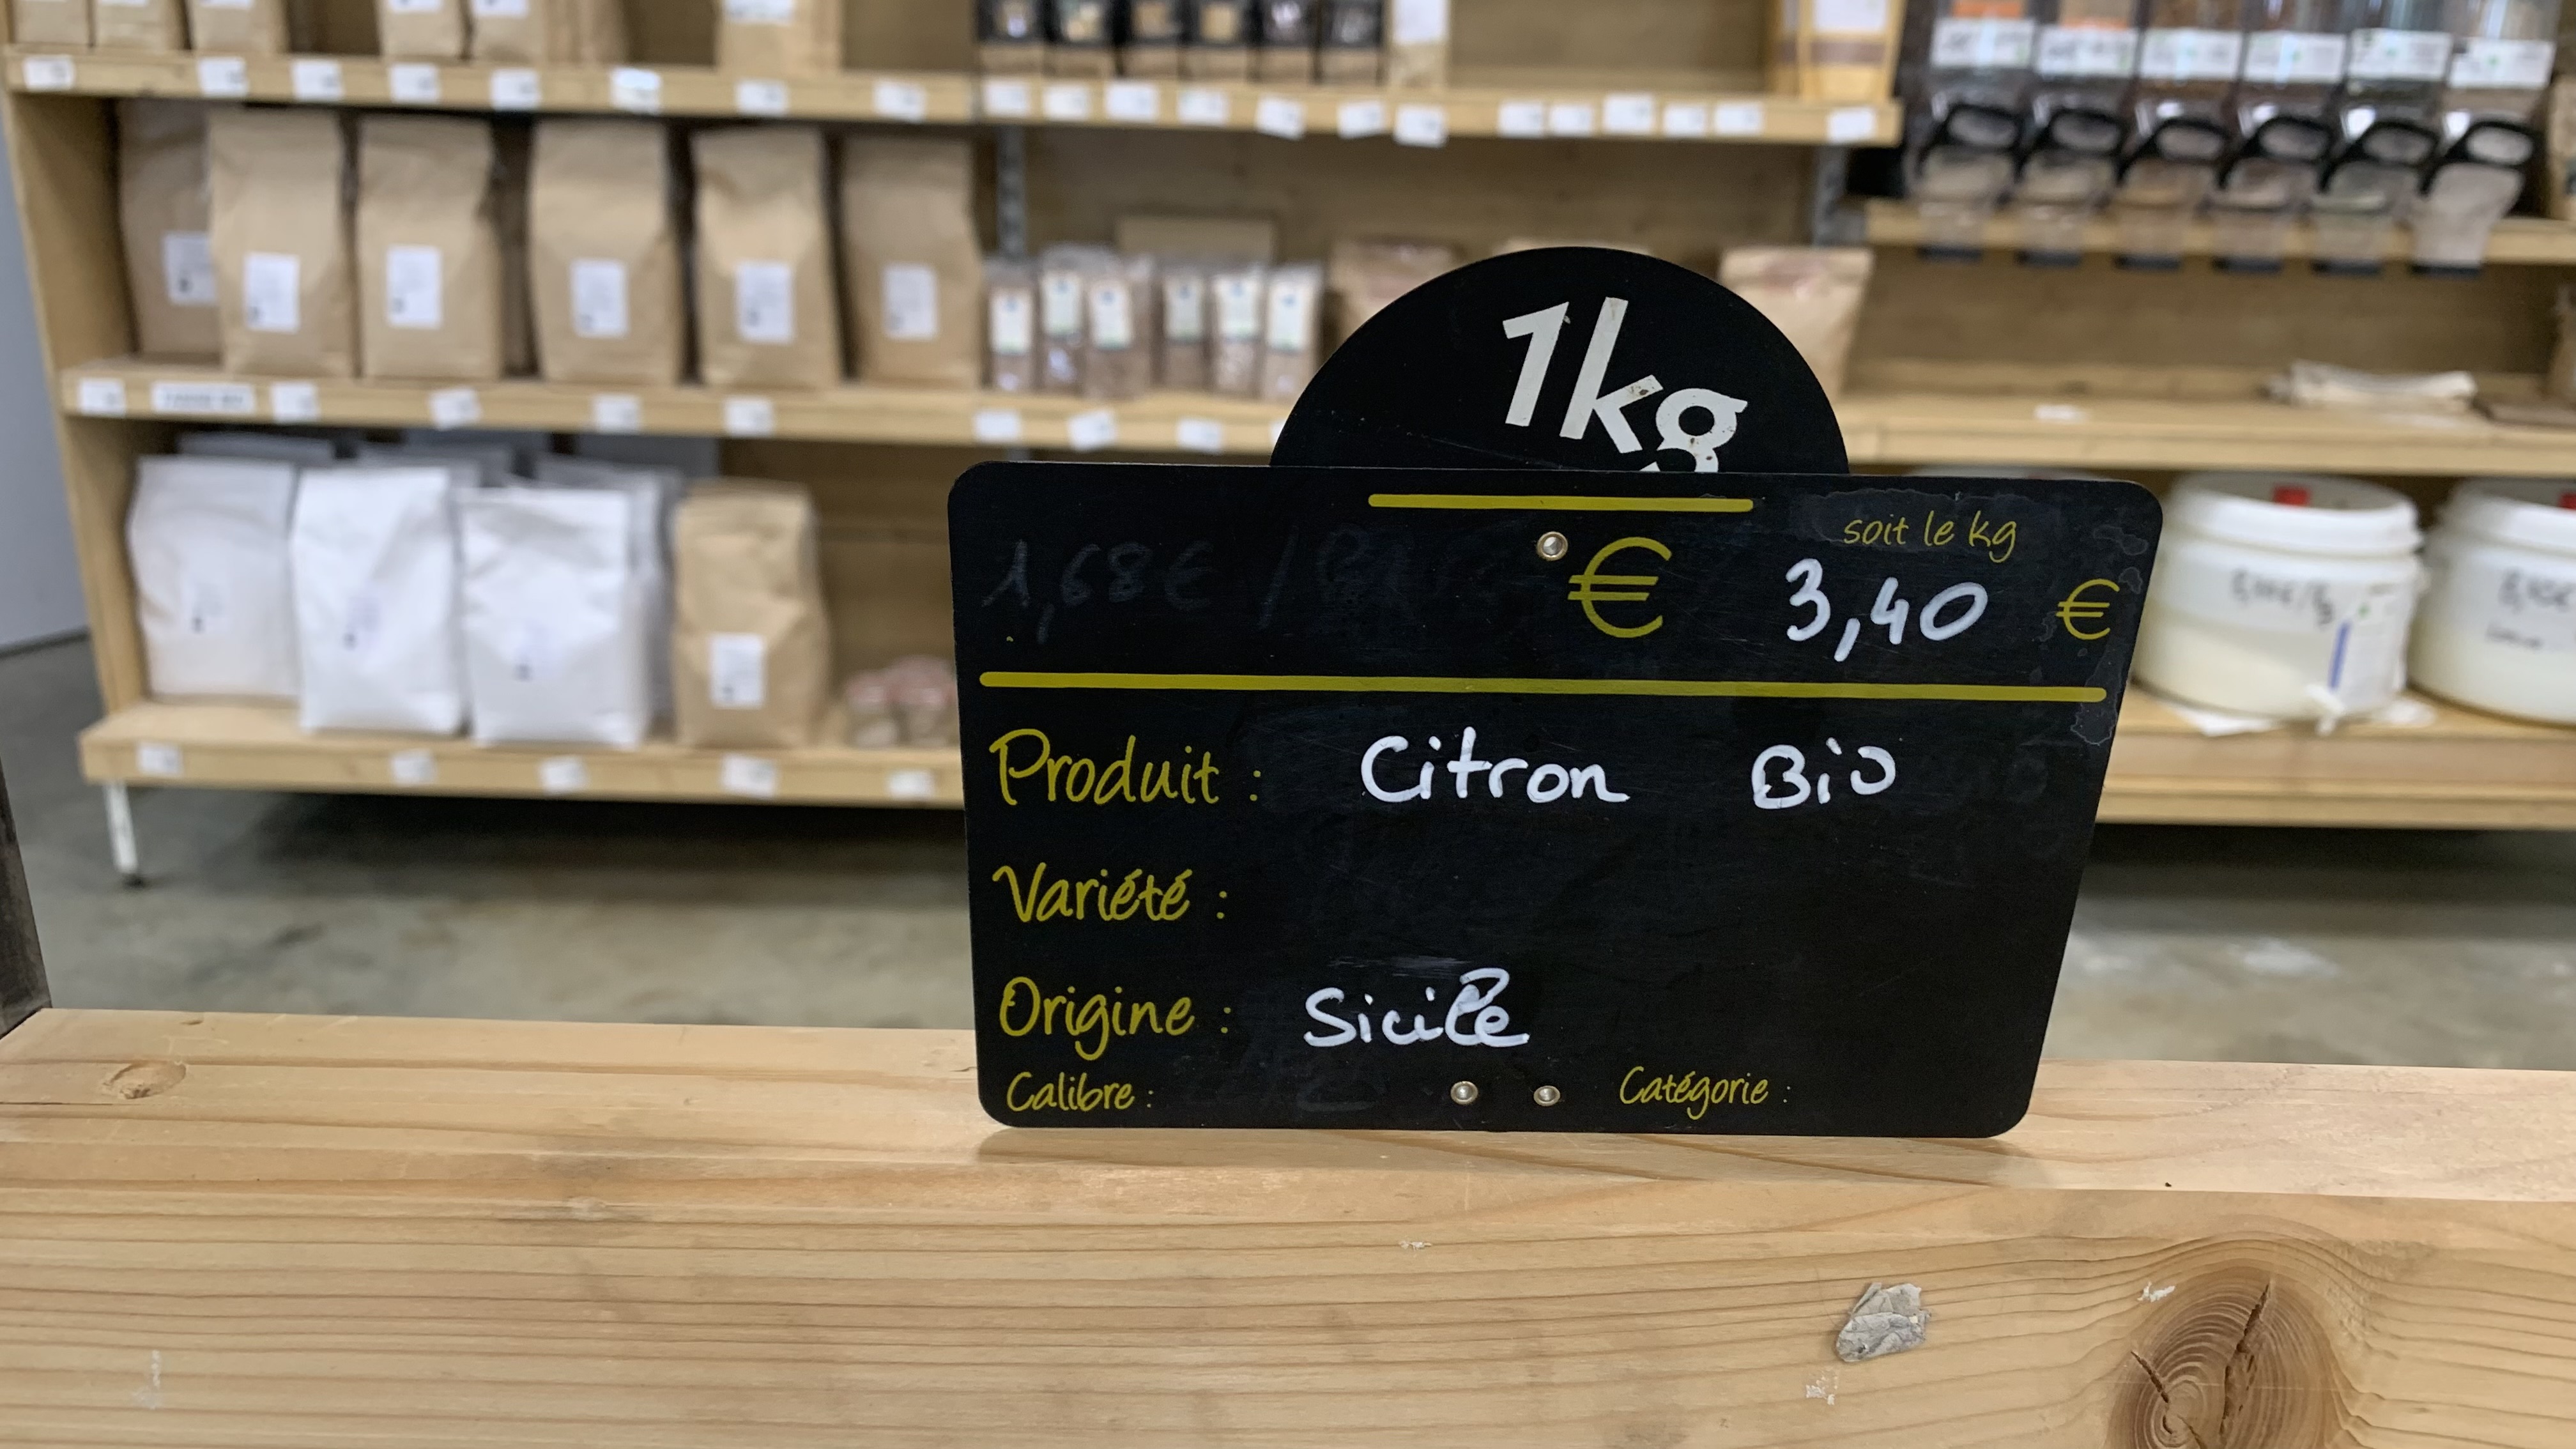 1kg
soit le kg
1,68€ / € 3,40 €
Produit : Citron Bio
Variété :
Origine : Sicile
Calibre : Catégorie :